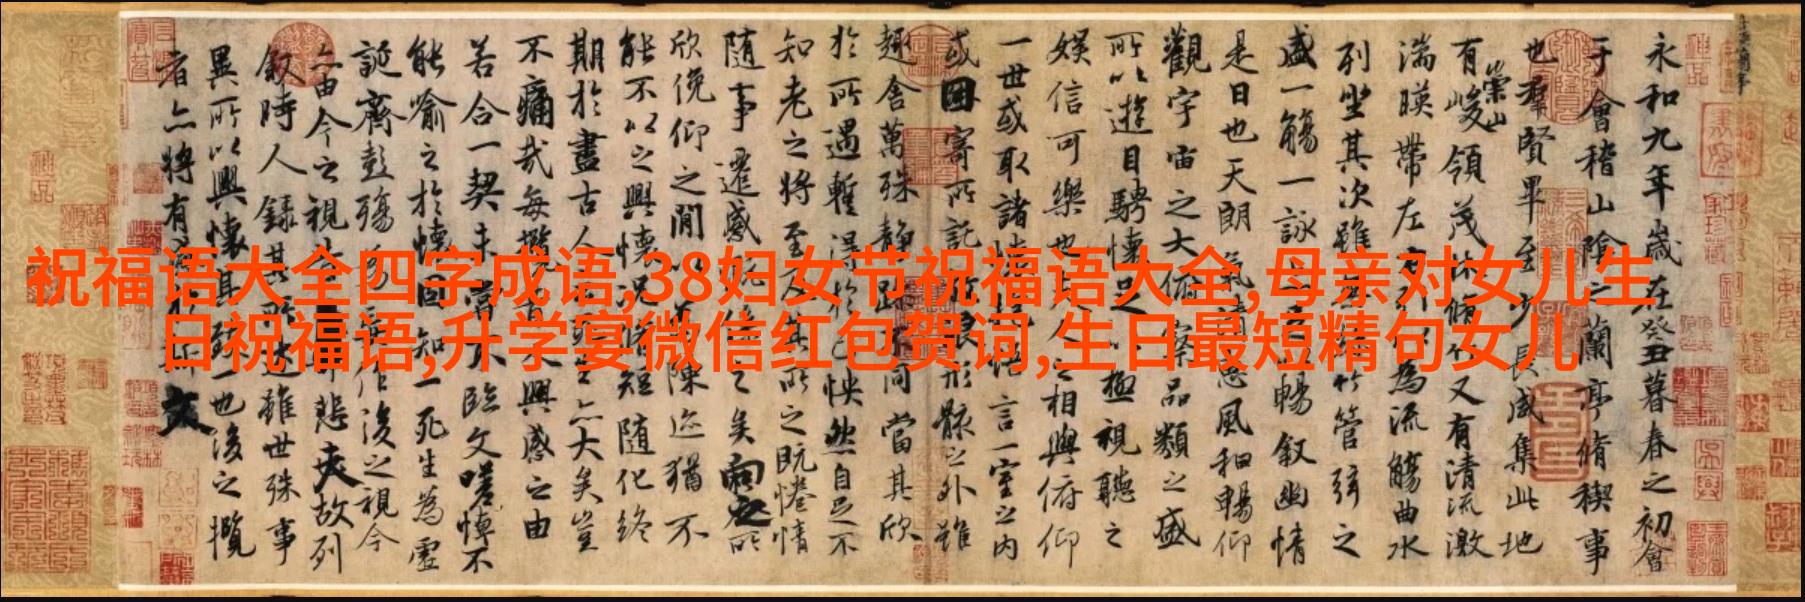 祝福语大全四字成语,38妇女节祝福语大全,母亲对女儿生
日祝福语,升学宴微信红包贺词,生日最短精句女儿
永和九年歲在癸丑暮春之初會
于會稽山陰之蘭亭脩禊事
也羣賢畢至少長咸集此地
有崇山峻領茂林脩竹又有清流激
湍暎帶左右引以為流觴曲水
列坐其次雖無絲竹管弦之
盛一觴一詠亦足以暢叙幽情
是日也天朗氣清惠風和暢仰
觀宇宙之大俯察品類之盛
所以遊目騁懷足以極視聽之
娛信可樂也夫人之相與俯仰
一世或取諸懷抱悟言一室之內
或因寄所託放浪形骸之外雖
趣舍萬殊靜躁不同當其欣
於所遇暫得於己怏然自足不
知老之將至及其所之既惓情
隨事遷感慨係之矣向之所
欣俛仰之閒以為陳迹猶不
能不以之興懷況脩短隨化終
期於盡古人云死生亦大矣豈
不痛哉每攬昔人興感之由
若合一契未嘗不臨文嗟悼不
能喻之於懷固知一死生為虛
誕齊彭殤為妄作後之視今
亦由今之視昔悲夫故列
叙時人錄其所述雖世殊事
異所以興懷其致一也後之攬
者亦將有感於斯文